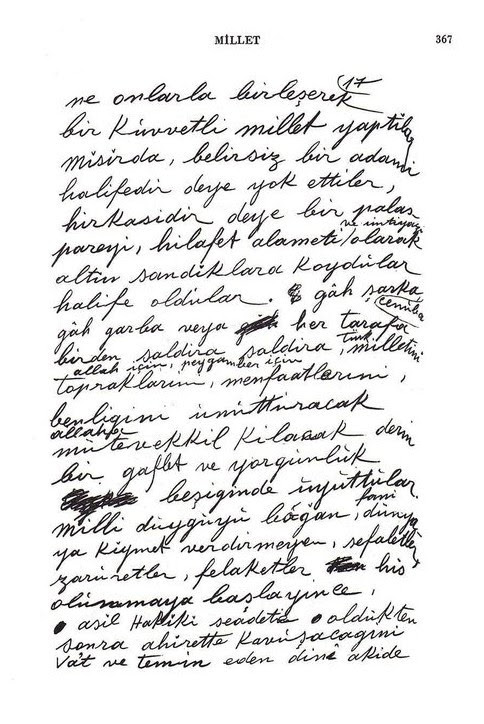 MİLLET
367
17
ne onlarla birleşerek
bir kuvvetli millet yaptılar
Mısırda, belirsiz bir adamı
halifedir deye yok ettiler,
hırkasıdır deye bir palas
ve imtiyazı
pareyi, hilafet alameti olarak
altın sandıklara koydular
halife oldular. gâh şarka,
cenuba
gâh garba veya her tarafa
birden saldıra saldıra, Türk milletini
allah için, peygamber için
topraklarını, menfaatlerini,
benliğini unutturacak
allaha
mütevekkil kılacak derin
bir gaflet ve yorgunluk
beşiğinde uyuttular
fani
Milli duyguyu boğan, dünya
ya kıymet verdirmeyen, sefaletler,
zaruretler, felaketler his
olunmaya başlayınca,
asıl Hakiki seâdete öldükten
sonra ahirette kavuşacağını
va't ve temin eden dinî akide